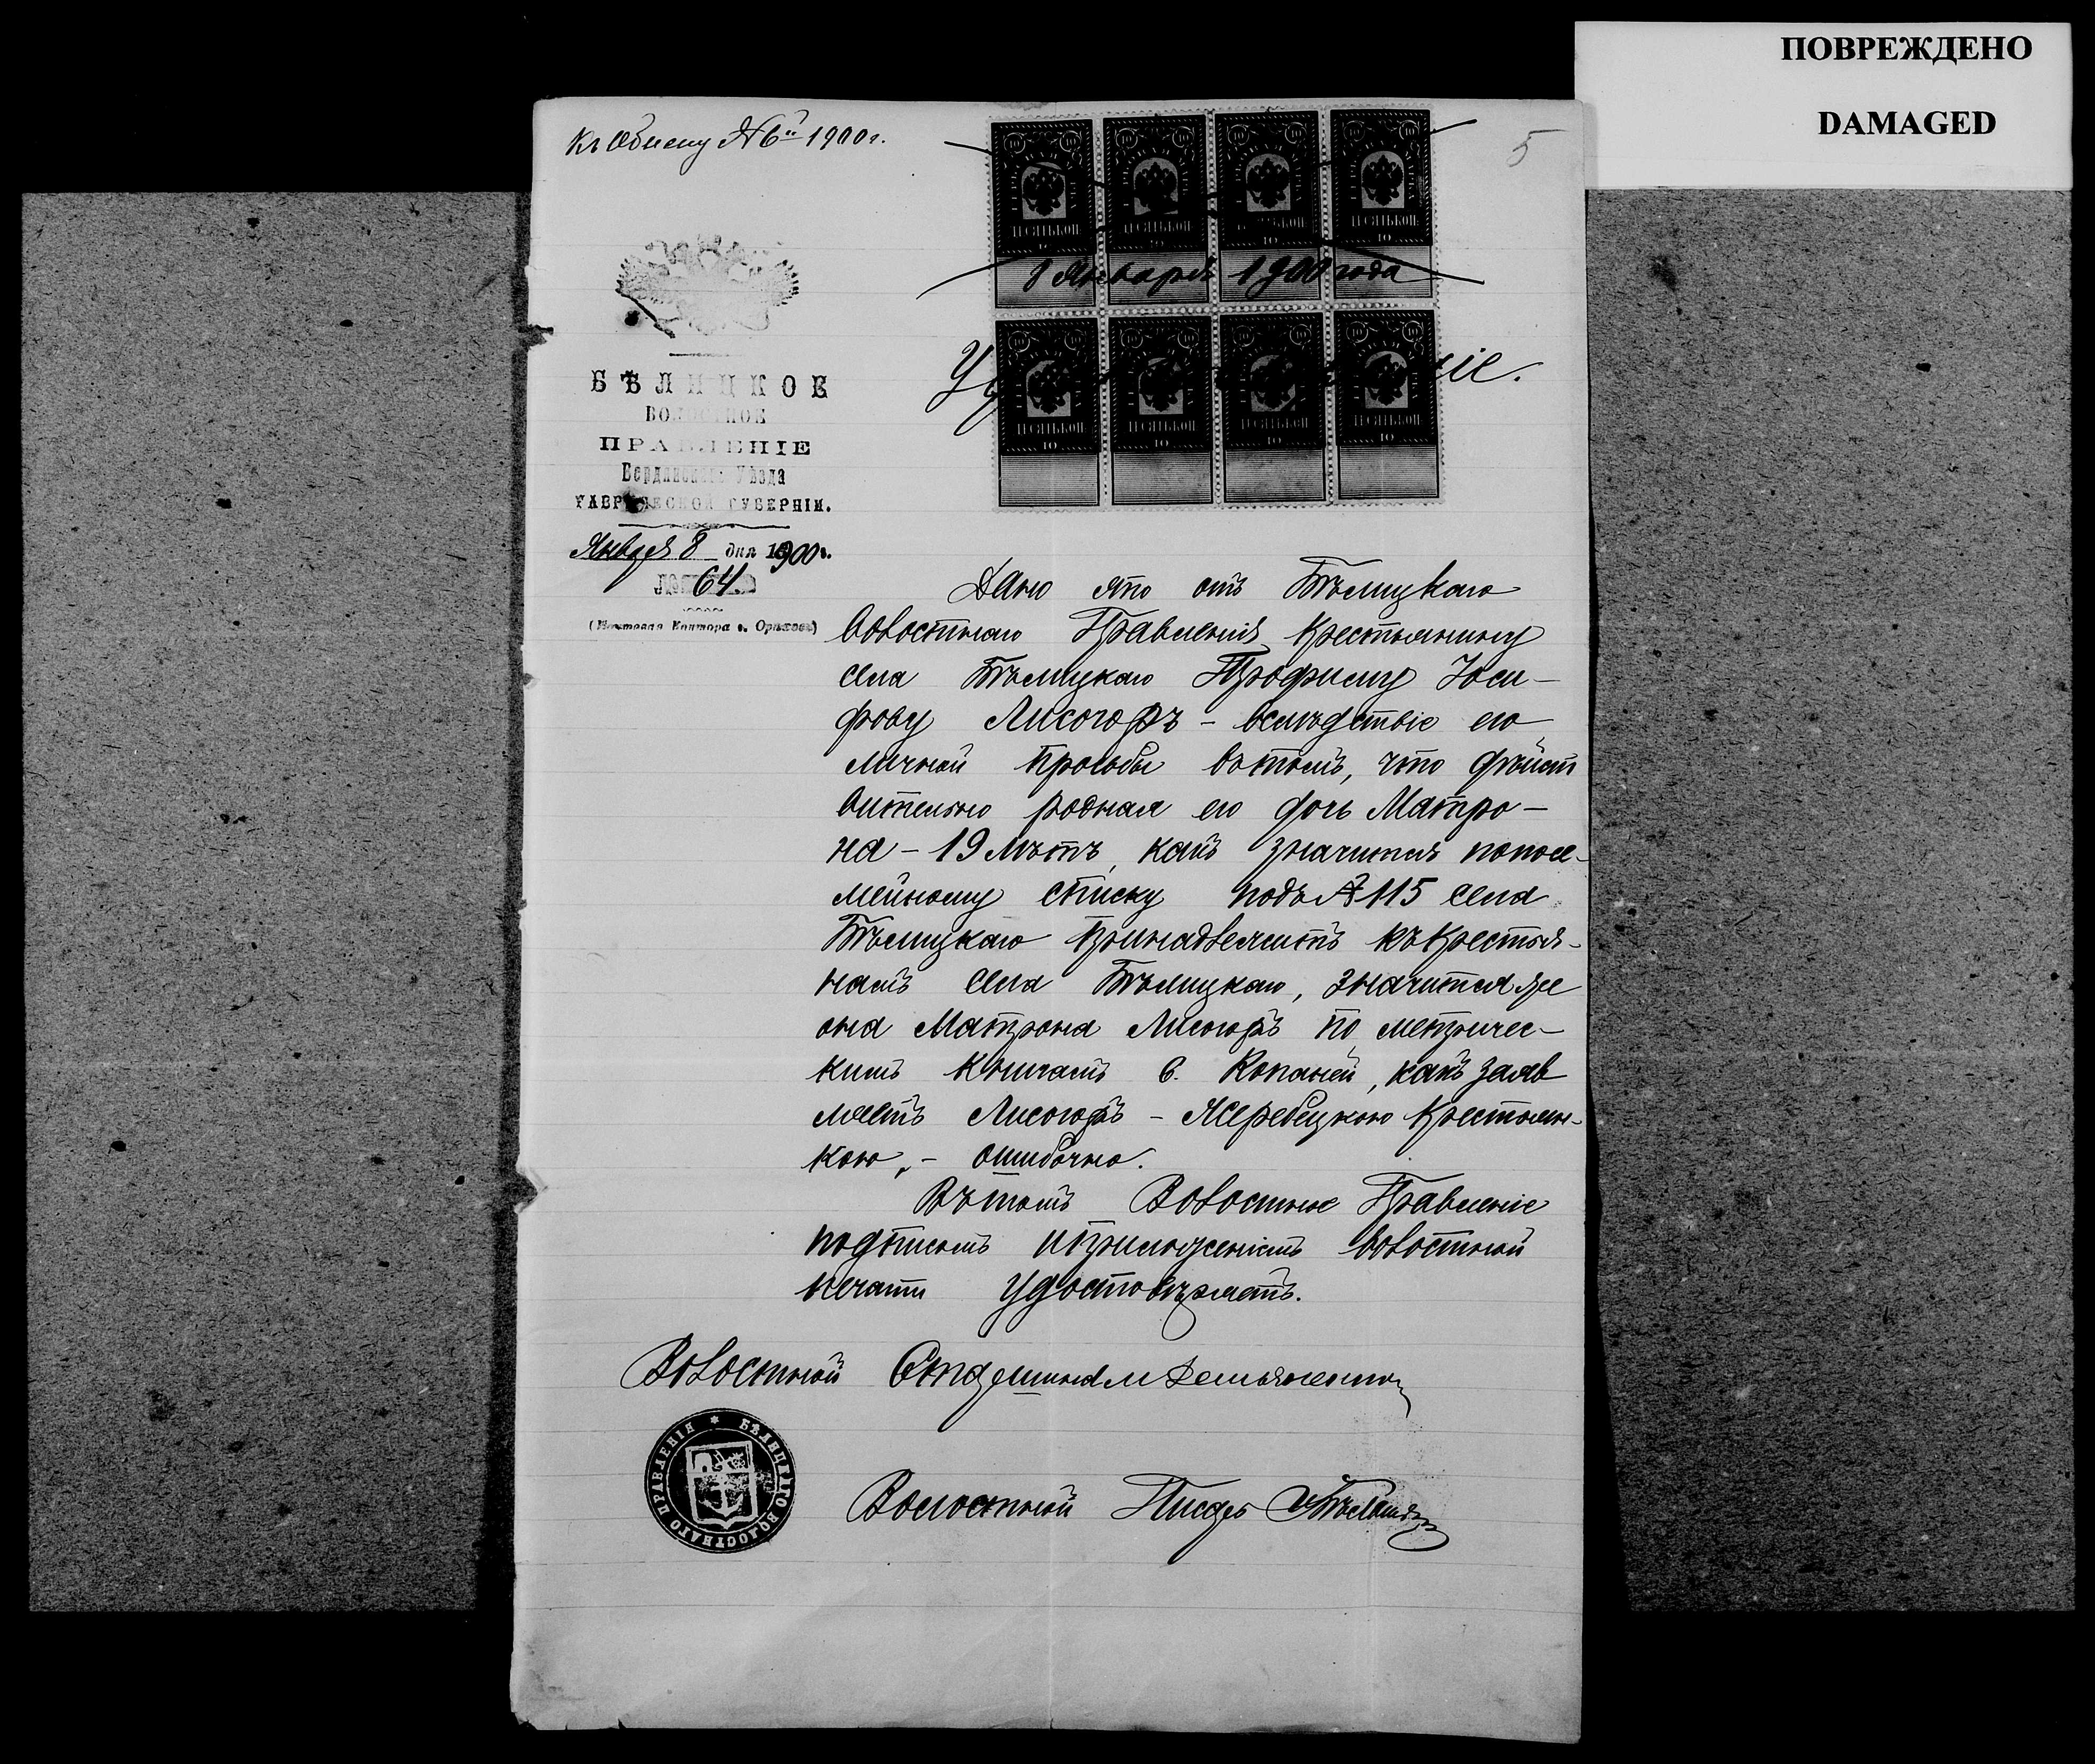 ПОВРЕЖДЕНО
DAMAGED
Къ Обыску №6й 1900г.
5
8 Января 1900 года
БѢЛИЦКОЕ
ВОЛОСТНОЕ
ПРАВЛЕНІЕ
Бердянскаго Уѣзда
ТАВРИЧЕСКОЙ ГУБЕРНІИ.
Января 8 дня 1900г.
№ 64.
(Почтовая Контора г. Орѣховъ)
Дано это отъ Бѣлицкаго
Волостнаго Правленія крестьянину
села Бѣлицкаго Трофиму Іоси-
фову Лисогоръ - вслѣдствіе его
личной просьбы въ томъ, что дѣйст
вительно родная его дочь Матро-
на - 19 лѣтъ, какъ значится по посе-
мейному списку подъ № 115 села
Бѣлицкаго принадлежитъ къ крестья-
намъ села Бѣлицкаго, значится же
она Матрона Лисогоръ по метричес-
кимъ книгамъ с. Копаней, какъ заяв
ляетъ Лисогоръ - Жеребецкою крестьян-
кою, - ошибочно.
Въ томъ Волостное Правленіе
подписомъ и приложеніемъ волостной
печати удостовѣряетъ.
Волостной Старшина
Волостной Писарь
БѢЛИЦКАГО ВОЛОСТНАГО ПРАВЛЕНІЯ